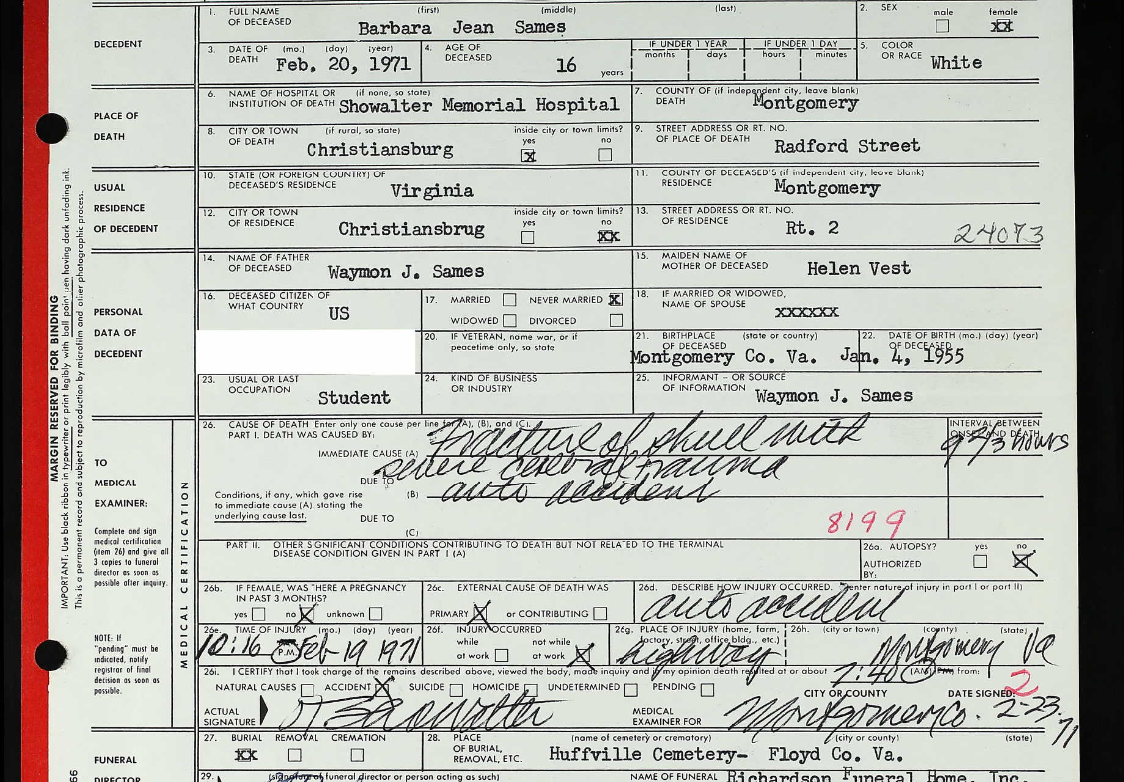 1. FULL NAME OF DECEASED (first) (middle) (last) Barbara Jean Sames 2. SEX male female XX
DECEDENT
3. DATE OF DEATH (mo.) (day) (year) Feb. 20, 1971 4. AGE OF DECEASED 16 years IF UNDER 1 YEAR months days IF UNDER 1 DAY hours minutes 5. COLOR OR RACE White
PLACE OF DEATH
6. NAME OF HOSPITAL OR INSTITUTION OF DEATH (if none, so state) Showalter Memorial Hospital 7. COUNTY OF DEATH (if independent city, leave blank) Montgomery
8. CITY OR TOWN OF DEATH (if rural, so state) Christiansburg inside city or town limits? yes X no 9. STREET ADDRESS OR RT. NO. OF PLACE OF DEATH Radford Street
USUAL RESIDENCE OF DECEDENT
10. STATE (OR FOREIGN COUNTRY) OF DECEASED'S RESIDENCE Virginia 11. COUNTY OF DECEASED'S RESIDENCE (if independent city, leave blank) Montgomery
12. CITY OR TOWN OF RESIDENCE Christiansbrug inside city or town limits? yes no XX 13. STREET ADDRESS OR RT. NO. OF RESIDENCE Rt. 2 24073
PERSONAL DATA OF DECEDENT
14. NAME OF FATHER OF DECEASED Waymon J. Sames 15. MAIDEN NAME OF MOTHER OF DECEASED Helen Vest
16. DECEASED CITIZEN OF WHAT COUNTRY US 17. MARRIED NEVER MARRIED X WIDOWED DIVORCED 18. IF MARRIED OR WIDOWED, NAME OF SPOUSE xxxxxx
20. IF VETERAN, name war, or if peacetime only, so state 21. BIRTHPLACE OF DECEASED (state or country) Montgomery Co. Va. 22. DATE OF BIRTH (mo.) (day) (year) OF DECEASED Jan. 4, 1955
23. USUAL OR LAST OCCUPATION Student 24. KIND OF BUSINESS OR INDUSTRY 25. INFORMANT - OR SOURCE OF INFORMATION Waymon J. Sames
MARGIN RESERVED FOR BINDING
IMPORTANT: Use black ribbon in typewriter or print legibly with ball point pen having dark unfading ink.
This is a permanent record and subject to reproduction by microfilm and other photographic process.
TO MEDICAL EXAMINER:
Complete and sign medical certification (item 26) and give all 3 copies to funeral director as soon as possible after inquiry.
NOTE: If "pending" must be indicated, notify registrar of final decision as soon as possible.
MEDICAL CERTIFICATION
26. CAUSE OF DEATH Enter only one cause per line for (A), (B), and (C).
PART I. DEATH WAS CAUSED BY: INTERVAL BETWEEN ONSET AND DEATH
IMMEDIATE CAUSE (A) Fracture of skull with hours
severe cerebral trauma
DUE TO
Conditions, if any, which gave rise to immediate cause (A) stating the underlying cause last. (B) auto accident
DUE TO (C) 8199
PART II. OTHER SIGNIFICANT CONDITIONS CONTRIBUTING TO DEATH BUT NOT RELATED TO THE TERMINAL DISEASE CONDITION GIVEN IN PART I (A) 26a. AUTOPSY? yes no X AUTHORIZED BY:
26b. IF FEMALE, WAS THERE A PREGNANCY IN PAST 3 MONTHS? yes no X unknown 26c. EXTERNAL CAUSE OF DEATH WAS PRIMARY X or CONTRIBUTING 26d. DESCRIBE HOW INJURY OCCURRED. (enter nature of injury in part I or part II) auto accident
26e. TIME OF INJURY (mo.) (day) (year) 10:16 P.M. Feb 19 1971 26f. INJURY OCCURRED while at work not while at work X 26g. PLACE OF INJURY (home, farm, factory, street, office bldg., etc.) highway 26h. (city or town) (county) (state) Montgomery Va
26i. I CERTIFY that I took charge of the remains described above, viewed the body, made inquiry and in my opinion death resulted at or about 7:40 (AM) PM from:
NATURAL CAUSES ACCIDENT X SUICIDE HOMICIDE UNDETERMINED PENDING 2
CITY OR COUNTY DATE SIGNED:
ACTUAL SIGNATURE MEDICAL EXAMINER FOR Montgomery Co. 2-23-71
FUNERAL DIRECTOR
27. BURIAL REMOVAL CREMATION XX 28. PLACE OF BURIAL, REMOVAL, ETC. (name of cemetery or crematory) (city or county) (state) Huffville Cemetery- Floyd Co. Va.
29. (signature of funeral director or person acting as such) NAME OF FUNERAL Richardson Funeral Home, Inc.
66